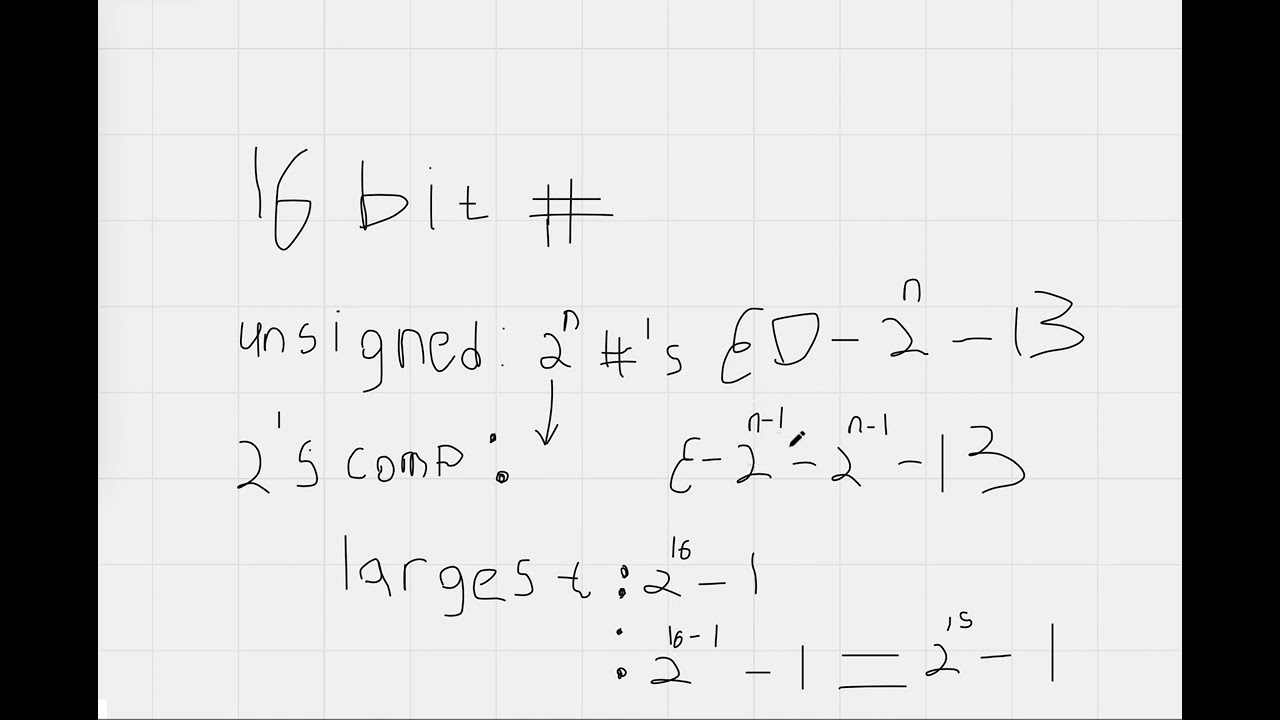 16 bit #
unsigned: 2ⁿ #'s {0 - 2ⁿ - 1}
↓
2's comp: {-2ⁿ⁻¹ - 2ⁿ⁻¹ - 1}
largest: 2¹⁶ - 1
: 2¹⁶⁻¹ - 1 = 2¹⁵ - 1